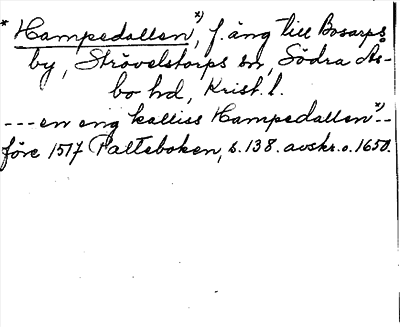 * Hampedallen x), f. äng till Bosarps
by, Strövelstorps sn, Södra Ås-
bo hd, Krist. l.
--- en eng kalliss Hampedallen x) --
före 1517 Palteboken, s. 138. avskr. o. 1650.